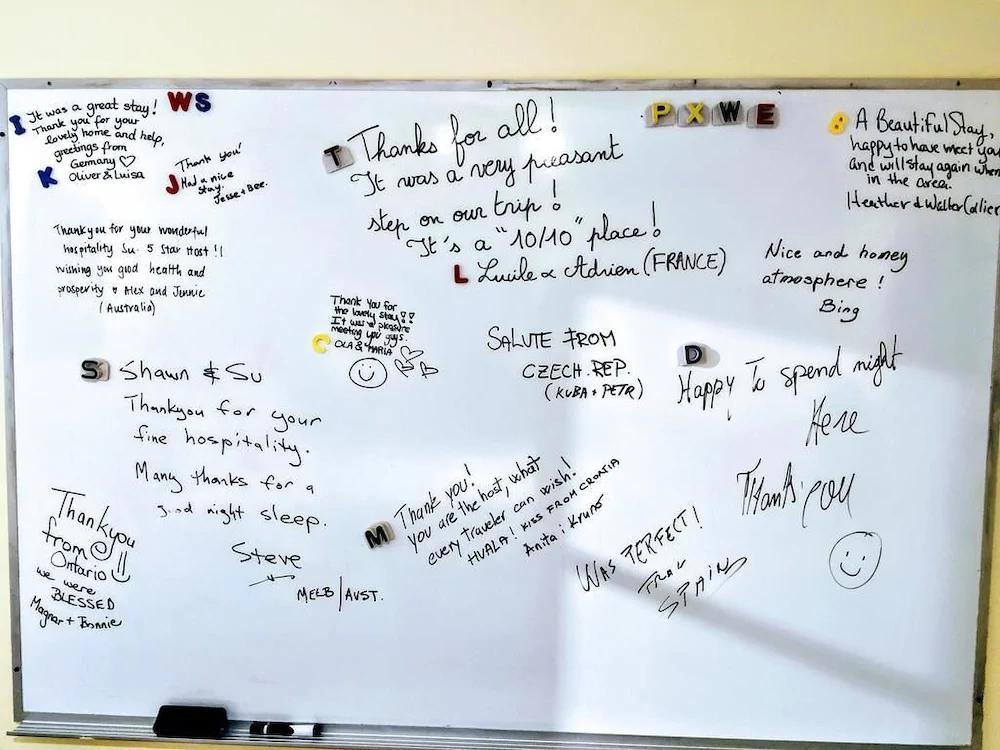 I
It was a great stay!
Thank you for your
lovely home and help,
greetings from
Germany ♡
Oliver & Luisa
K
W S
J
Thank you!
Had a nice
stay.
Jesse + Bee.
T
Thanks for all!
It was a very pleasant
step on our trip!
It's a "10/10" place!
L
Lucile & Adrien (FRANCE)
P X W E
B
A Beautiful Stay,
happy to have meet you
and will stay again when
in the area.
Heather & Walter Collier
Thankyou for your wonderful
hospitality Su. 5 Star Host!!
wishing you good health and
prosperity Alex and Jennie
(Australia)
Nice and homey
atmosphere!
Bing
C
Thank you for
the lovely stay!!
It was a pleasure
meeting you guys.
OLA & MARIA
SALUTE FROM
CZECH. REP.
(KUBA + PETR)
D
Happy To spend night
Here
Thank you
S
Shawn & Su
Thankyou for your
fine hospitality.
Many thanks for a
good night sleep.
Steve
MELB/AUST.
M
Thank you!
you are the host, what
every traveler can wish!
HVALA! KISS FROM CROATIA
Anita i Kruno
WAS PERFECT!
SPAIN
Thankyou
from
Ontario
we were
BLESSED
Magnar + Bonnie